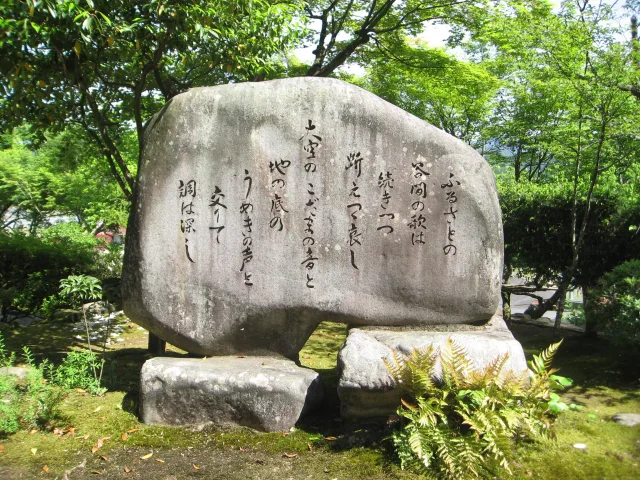 ふるさとの
谷間の歌は
続きつつ
断えつつ哀し
大空のこだまの音と
地の底の
うめきの声と
交りて
調は深し